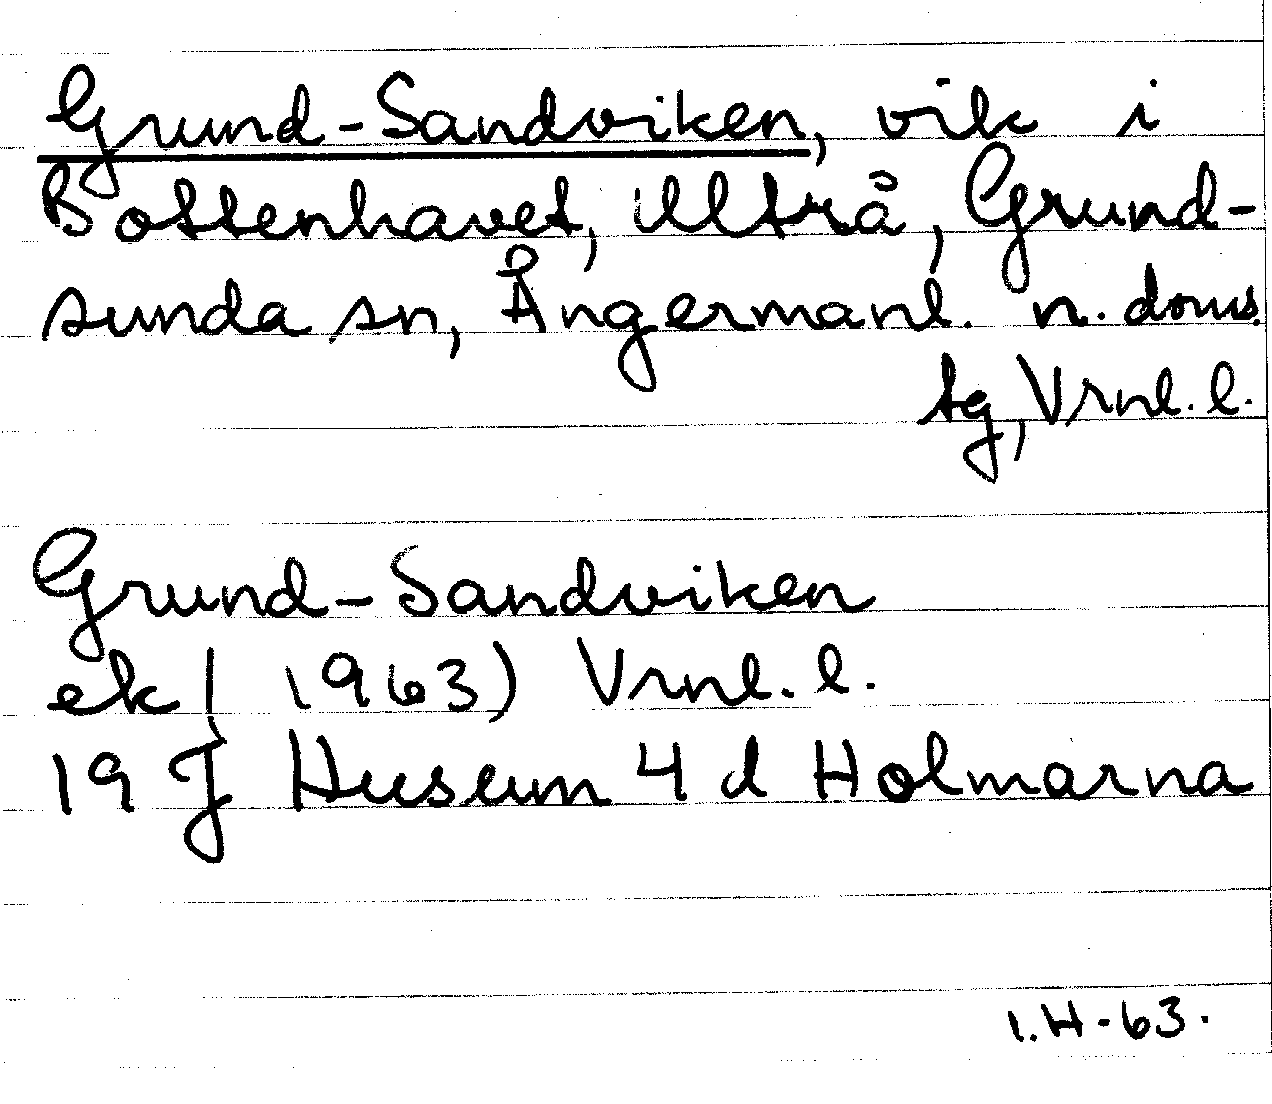 Grund-Sandviken, vik i
Bottenhavet, Ulltrå, Grund-
sunda sn, Ångermanl. n. doms.
tg, Vrnl. l.
Grund-Sandviken
ek (1963) Vrnl. l.
19 J Husum 4 d Holmarna
I.H-63.